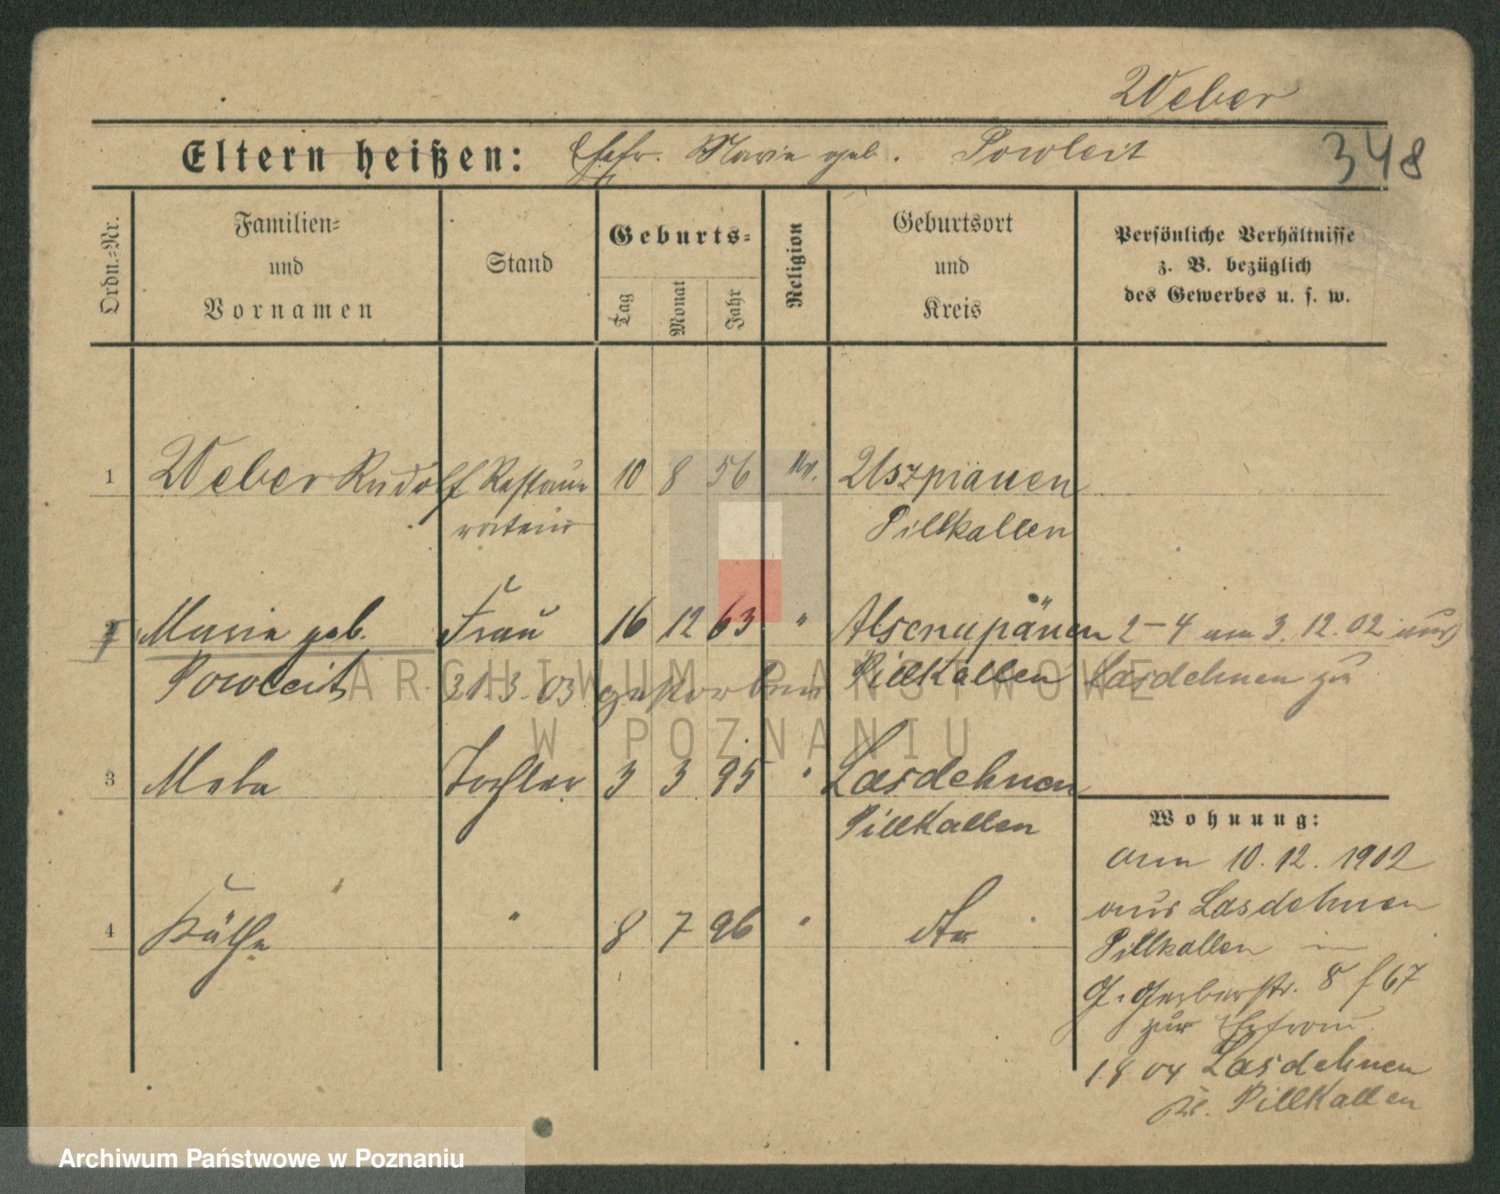 Weber
Eltern heißen: Ehefr. Marie geb. Powleit
348
Ordn.-Nr.
Familien-
und
Vornamen
Stand
Geburts-
Tag
Monat
Jahr
Religion
Geburtsort
und
Kreis
Persönliche Verhältnisse
z. B. bezüglich
des Gewerbes u. s. w.
1 Weber Rudolf Restau- 10 8 56 Uszpiauen
rateur Pillkallen
2 Marie geb. Frau 16 12 63 " 2-4 am 3.12.02 aus
Powleit 31.3.03 gestorben Pillkallen Lasdehnen zu
3 Meta Tochter 3 3 95 " Lasdehnen
Pillkallen
4 Käthe " 8 7 96 "
Wohnung:
am 10.12.1902
aus Lasdehnen
Pillkallen in
G. Gerberstr. 8
zur Ehefrau
1.8 04 Lasdehnen
Kr. Pillkallen
ARCHIWUM PAŃSTWOWE
W POZNANIU
Archiwum Państwowe w Poznaniu